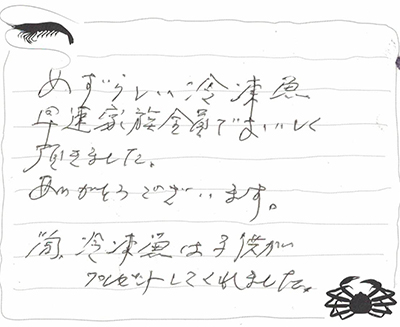 めずらしい冷凍魚
早速家族全員でおいしく
頂きました。
ありがとうございます。
尚、冷凍魚は子供が
プレゼントしてくれました。